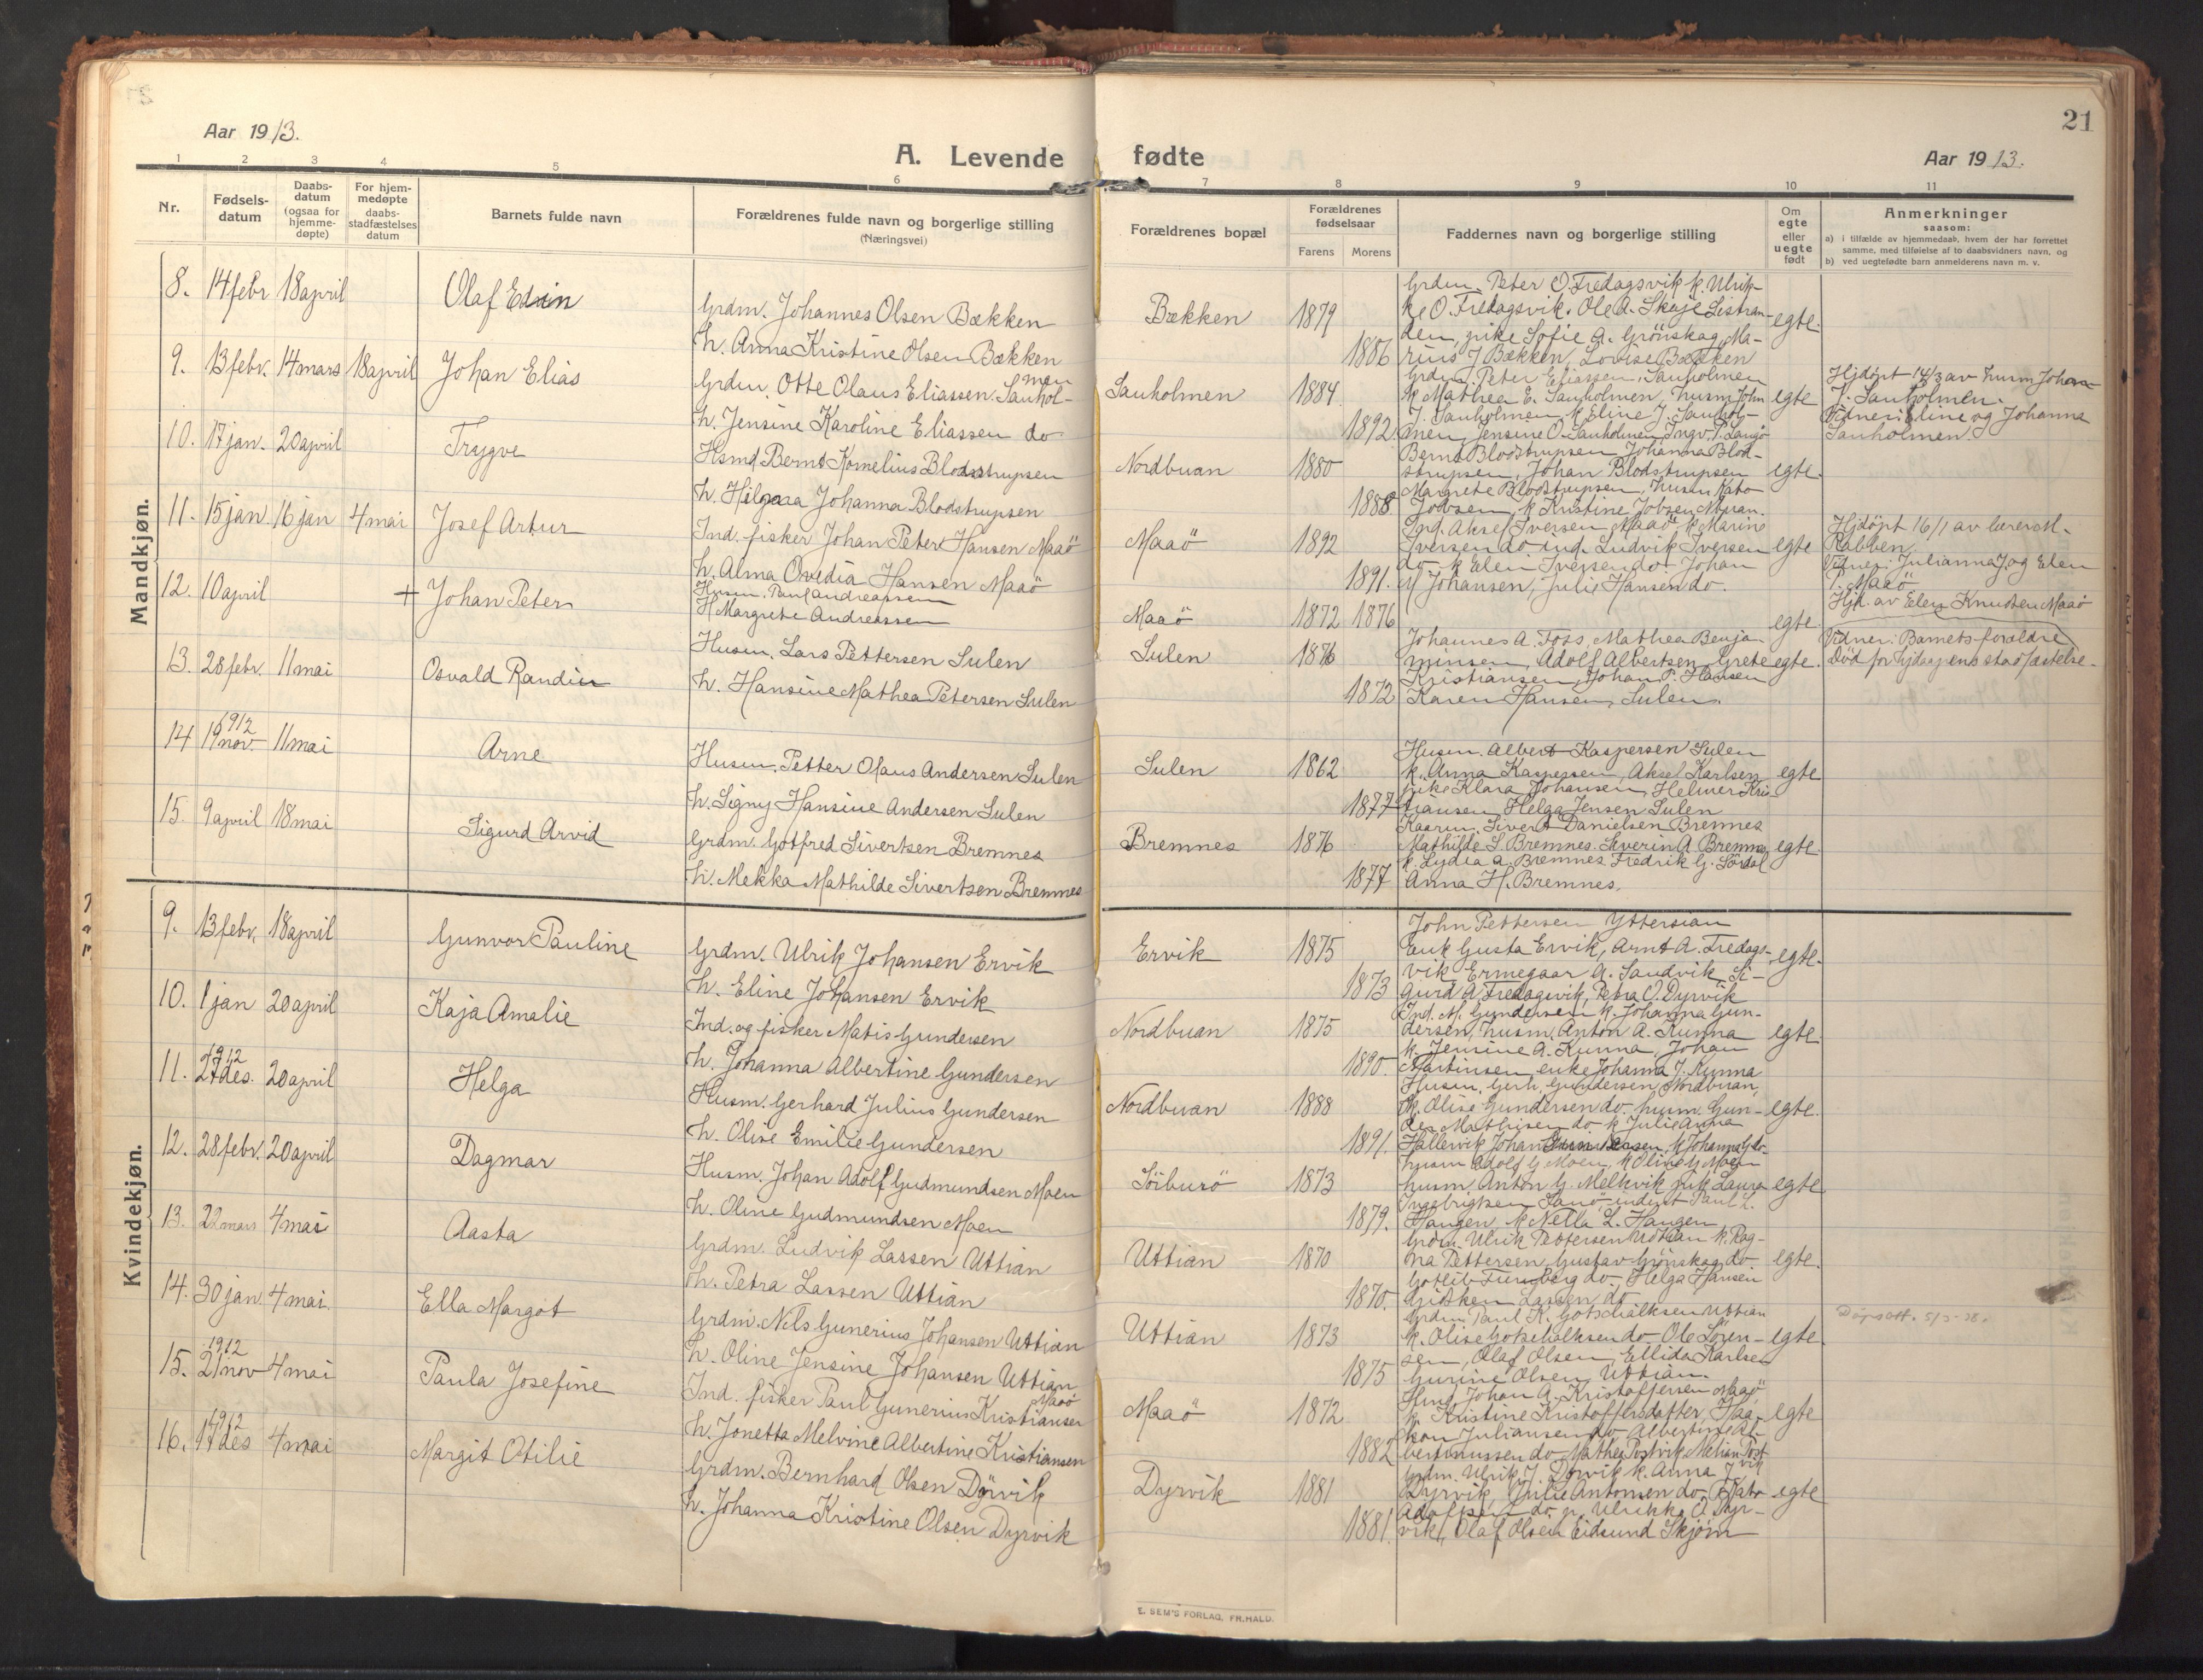 21
Aar 1913.
A. Levende fødte
Aar 1913.
1 2 3 4 5 6 7 8 9 10 11
Nr.
Fødsels-
datum
Daabs-
datum
(ogsaa for
hjemme-
døpte)
For hjem-
medøpte
daabs-
stadfæstelses
datum
Barnets fulde navn
Forældrenes fulde navn og borgerlige stilling
(Næringsvei)
Forældrenes bopæl
Forældrenes
fødselsaar
Farens Morens
Faddernes navn og borgerlige stilling
Om
egte
eller
uegte
født
Anmerkninger
saasom:
a) i tilfælde av hjemmedaab, hvem der har forrettet
samme, med tilføielse af to daabsvidners navn, og
b) ved uegtefødte barn anmelderens navn m. v.
Mandkjøn.
8. 14 febr 18 april Olaf Edvin
Grdm. Johannes Olsen Bækken
h. Anna Kristine Olsen Bækken
Bækken 1879 1886 egte.
Grdm. Peter O. Fredagsvik k. Ulrik-
ke O. Fredagsvik. Ole A. Skaje Listran-
den, pike Sofie A. Grönskag, Ma-
rius J Bækken, Lovise Bækken
9. 13 febr. 14 mars 18 april Johan Elias
Grdm. Otte Olaus Eliassen Sauhol-
men
h. Jensine Karoline Eliassen do
Sauholmen 1884 1892. egte
Grdm. Peter Eliassen, Sauholmen
k Mathea E. Sauholmen, husm John
J. Sauholmen, k Eline J. Sauhol-
men, Jensine O. Sauholmen, Ingv. P. Langö
Hjdöpt 14/3 av husm Johan
J. Sauholmen.
Vidner: Eline og Johanna
Sauholmen.
10. 17 jan. 20 april Trygve
Hsmd Bernt Kornelius Blodstrupsen
h. Helgaa Johanna Blodstrupsen
Nordbuan 1880 1888 egte.
Bernt Blodstrupsen Johanna Blod-
strupsen, Johan Blodstrupsen
Margrete Blodstrupsen, husm Kato
Jobsen, k Kristine Jobsen Nbuan.
11. 15 jan 16 jan 4 mai Josef Artur
Ind. fisker Johan Peter Hansen Maaö
h. Alma Ovedia Hansen Maaö
Maaö 1892 1891. egte
Ind. Aksel Iversen Maaö k Marine
Iversen do ind. Ludvik Iversen
do k Elen Iversen do Johan
M Johansen, Julie Hansen do.
Hjdöpt 16/1 av lærer M.
Rabben
Vidner: Julianna J. og Elen
P. Maaö
12. 10 april + Johan Peter
Husm. Paul Andreassen
H Margrete Andreassen
Maaö 1872 1876 egte
Hjd. av Elen Knutsen Maaö
Vidner: Barnets forældre
Död for hjdaapens stadfæstelse.
13. 28 febr. 11 mai Osvald Randin
Husm. Lars Pettersen Sulen
h. Hansine Mathea Petersen Sulen
Sulen 1876 1872 egte.
Johannes A. Foss, Mathea Benja-
minsen, Adolf Albertsen, Grete
Kristiansen, Johan P. Hansen
Karen Hansen, Sulen.
14 1912
19 nov. 11 mai Arne
Husm. Petter Olaus Andersen Sulen
h. Signy Hansine Andersen Sulen
Sulen 1862 1877 egte
Husm. Albert Kaspersen Sulen
k. Anna Kaspersen, Aksel Karlsen
pike Klara Johansen, Helmer Kris-
tiansen, Helga Jensen Sulen
15. 9 april 18 mai Sigurd Arvid
Grdm. Gotfred Sivertsen Bremnes
h. Mekka Mathilde Sivertsen Bremnes
Bremnes 1876 1877 egte.
Kaarm. Sivert Danielsen Bremnes
Mathilde S. Bremnes. Severin A Bremnes
k. Lydia A. Bremnes Fredrik G. Sördal
Anna H. Bremnes.
Kvindekjøn.
9. 13 febr. 18 april Gunvor Pauline
Grdm. Ulrik Johansen Ervik
h. Eline Johansen Ervik
Ervik 1875 1873 egte.
John Pettersen Yttersian
Enk Gusta Ervik, Arnt A. Fredags-
vik Ermegaar A. Sandvik, Si-
gurd A Fredagsvik, Petra O. Dyrvik
10. 1 jan 20 april Kaja Amalie
Ind. og fisker Matis Gundersen
h. Johanna Albertine Gundersen
Nordbuan 1875 1890. egte.
Ind. M. Gundersen k. Johanna Gun-
dersen, husm. Anton A. Kunna
k. Jensine A. Kunna Johan
Martinsen, enke Johanna J. Kunna
11. 1912
27 des. 20 april Helga
Husm. Gerhard Julius Gundersen
h. Olise Emilie Gundersen
Nordbuan 1888 1891. egte.
Husm. Gerh. Gundersen, Nordbuan,
k. Olise Gundersen do. husm. Gun-
der Mathisen do k Julie Anna
Hallervik Johan Gundersen, k Johanna G do.
12. 28 febr. 20 april Dagmar
Husm. Johan Adolf Gudmundsen Moen
h. Oline Gudmundsen Moen
Sörburö 1873 1879. egte
husm Adolf G Moen, k Oline G Moen
husm Anton G. Melkvik pik Laura
Ingebrigtsen Sauö, inderst Paul L.
Haugen, k Nella L. Haugen
13. 22 mars 4 mai Aasta
Grdm. Ludvik Lassen Uttian
h. Petra Lassen Uttian
Uttian 1870 1870. egte.
Grdm. Ulrik Pettersen Uttian k. Rag-
na Pettersen, Gustav Grönskag do
Gotlib Furuberg do Helga Hansen
Gidsken Lassen do
14. 30 jan. 4 mai. Ella Margot
Grdm. Nils Gunerius Johansen Uttian
h. Oline Jensine Johansen Uttian
Uttian 1873 1875 egte.
Grdm Paul K. Gotschalksen Uttian
k. Olise Gotschalksen do Ole Sören-
sen, Olaf Olsen, Ellida Karlsen
Gurine Olsen, Uttian.
Dåpsatt. 5/3-38.
15. 1912
21 nov 4 mai Paula Josefine
Ind. fisker Paul Gunerius Kristiansen
Maaö
h. Jonetta Melvine Albertine Kristiansen
Maaö 1872 1882 egte
Husm Johan A. Kristoffersen Maaö
k. Kristine Kristoffersdatter, Haa-
kon Juliansen do Albertine Al-
bertinussen do Mathea Postvik Metian Post
vik
16. 1912
17 des 4 mai Margit Otilie
Grdm. Bernhard Olsen Dyrvik
h. Johanna Kristine Olsen Dyrvik
Dyrvik 1881 1881. egte
Grdm. Ulrik J. Dyrvik k. Anna J
Dyrvik, Julie Antonsen do Kato
Adolfsen do. p. Ulrikke O Dyr-
vik, Olaf Olsen Eidsund Skjörn
E. SEM'S FORLAG, FR.HALD.